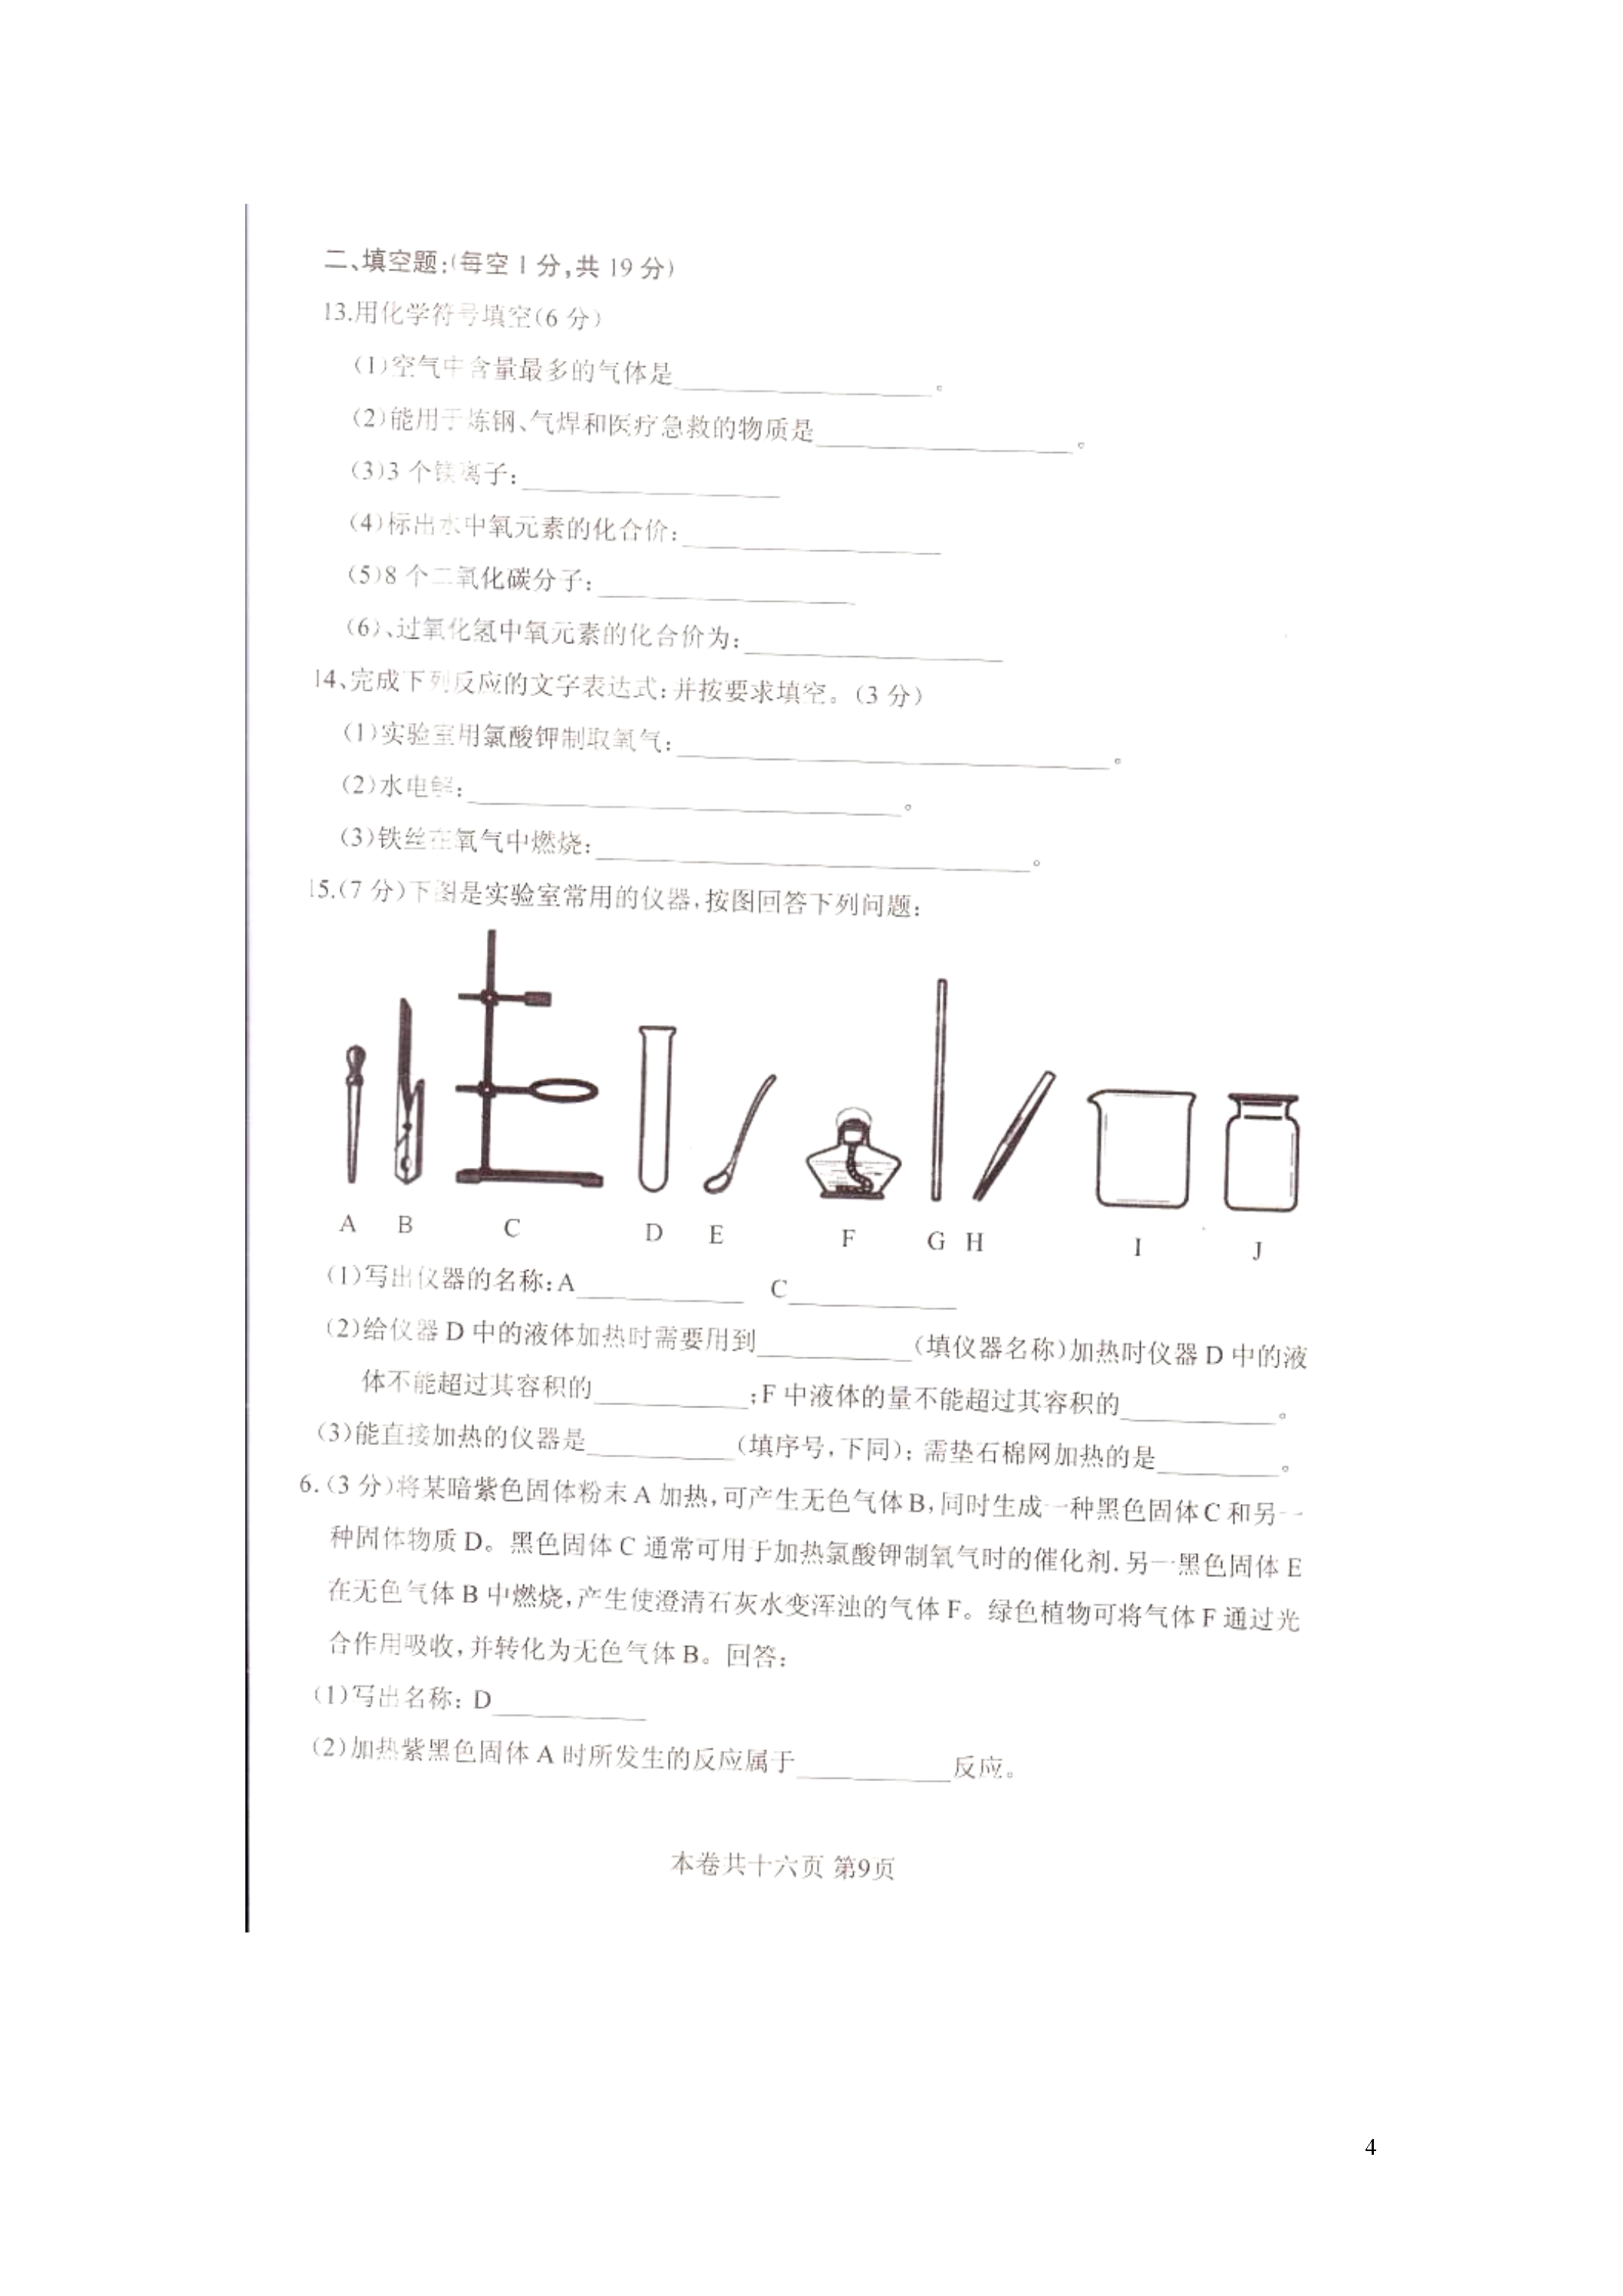 二、填空题:(每空1分,共19分)
13.用化学符号填空(6分)
(1)空气中含量最多的气体是____________。
(2)能用于炼钢、气焊和医疗急救的物质是____________。
(3)3个镁离子:____________
(4)标出水中氧元素的化合价:____________
(5)8个二氧化碳分子:____________
(6)、过氧化氢中氧元素的化合价为:____________
14、完成下列反应的文字表达式:并按要求填空。(3分)
(1)实验室用氯酸钾制取氧气:____________________。
(2)水电解:____________________。
(3)铁丝在氧气中燃烧:____________________。
15.(7分)下图是实验室常用的仪器,按图回答下列问题:
A B C D E F G H I J
(1)写出仪器的名称:A________ C________
(2)给仪器D中的液体加热时需要用到________(填仪器名称)加热时仪器D中的液
体不能超过其容积的________;F中液体的量不能超过其容积的________。
(3)能直接加热的仪器是________(填序号,下同);需垫石棉网加热的是________。
6.(3分)将某暗紫色固体粉末A加热,可产生无色气体B,同时生成一种黑色固体C和另一
种固体物质D。黑色固体C通常可用于加热氯酸钾制氧气时的催化剂.另一黑色固体E
在无色气体B中燃烧,产生使澄清石灰水变浑浊的气体F。绿色植物可将气体F通过光
合作用吸收,并转化为无色气体B。回答:
(1)写出名称:D________
(2)加热紫黑色固体A时所发生的反应属于________反应。
本卷共十六页 第9页
4